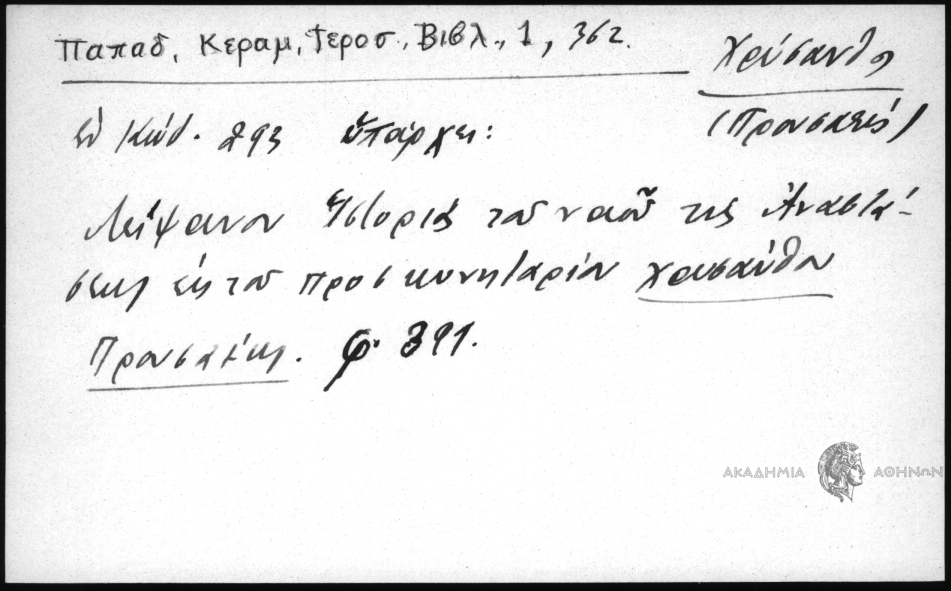 Παπαδ. Κεραμ, Ἱεροσ., Βιβλ., 1, 362.
Χρύσανθος
(Προυσαεύς)
Ἐν Κώδ. 293 ὑπάρχει:
Λείψανον Ἱστορίας τοῦ ναοῦ τῆς Ἀναστά-
σεως ἐκ τοῦ προσκυνηταρίου Χρυσάνθου
Προυσαέως. φ. 391.
ΑΚΑΔΗΜΙΑ ΑΘΗΝΩΝ